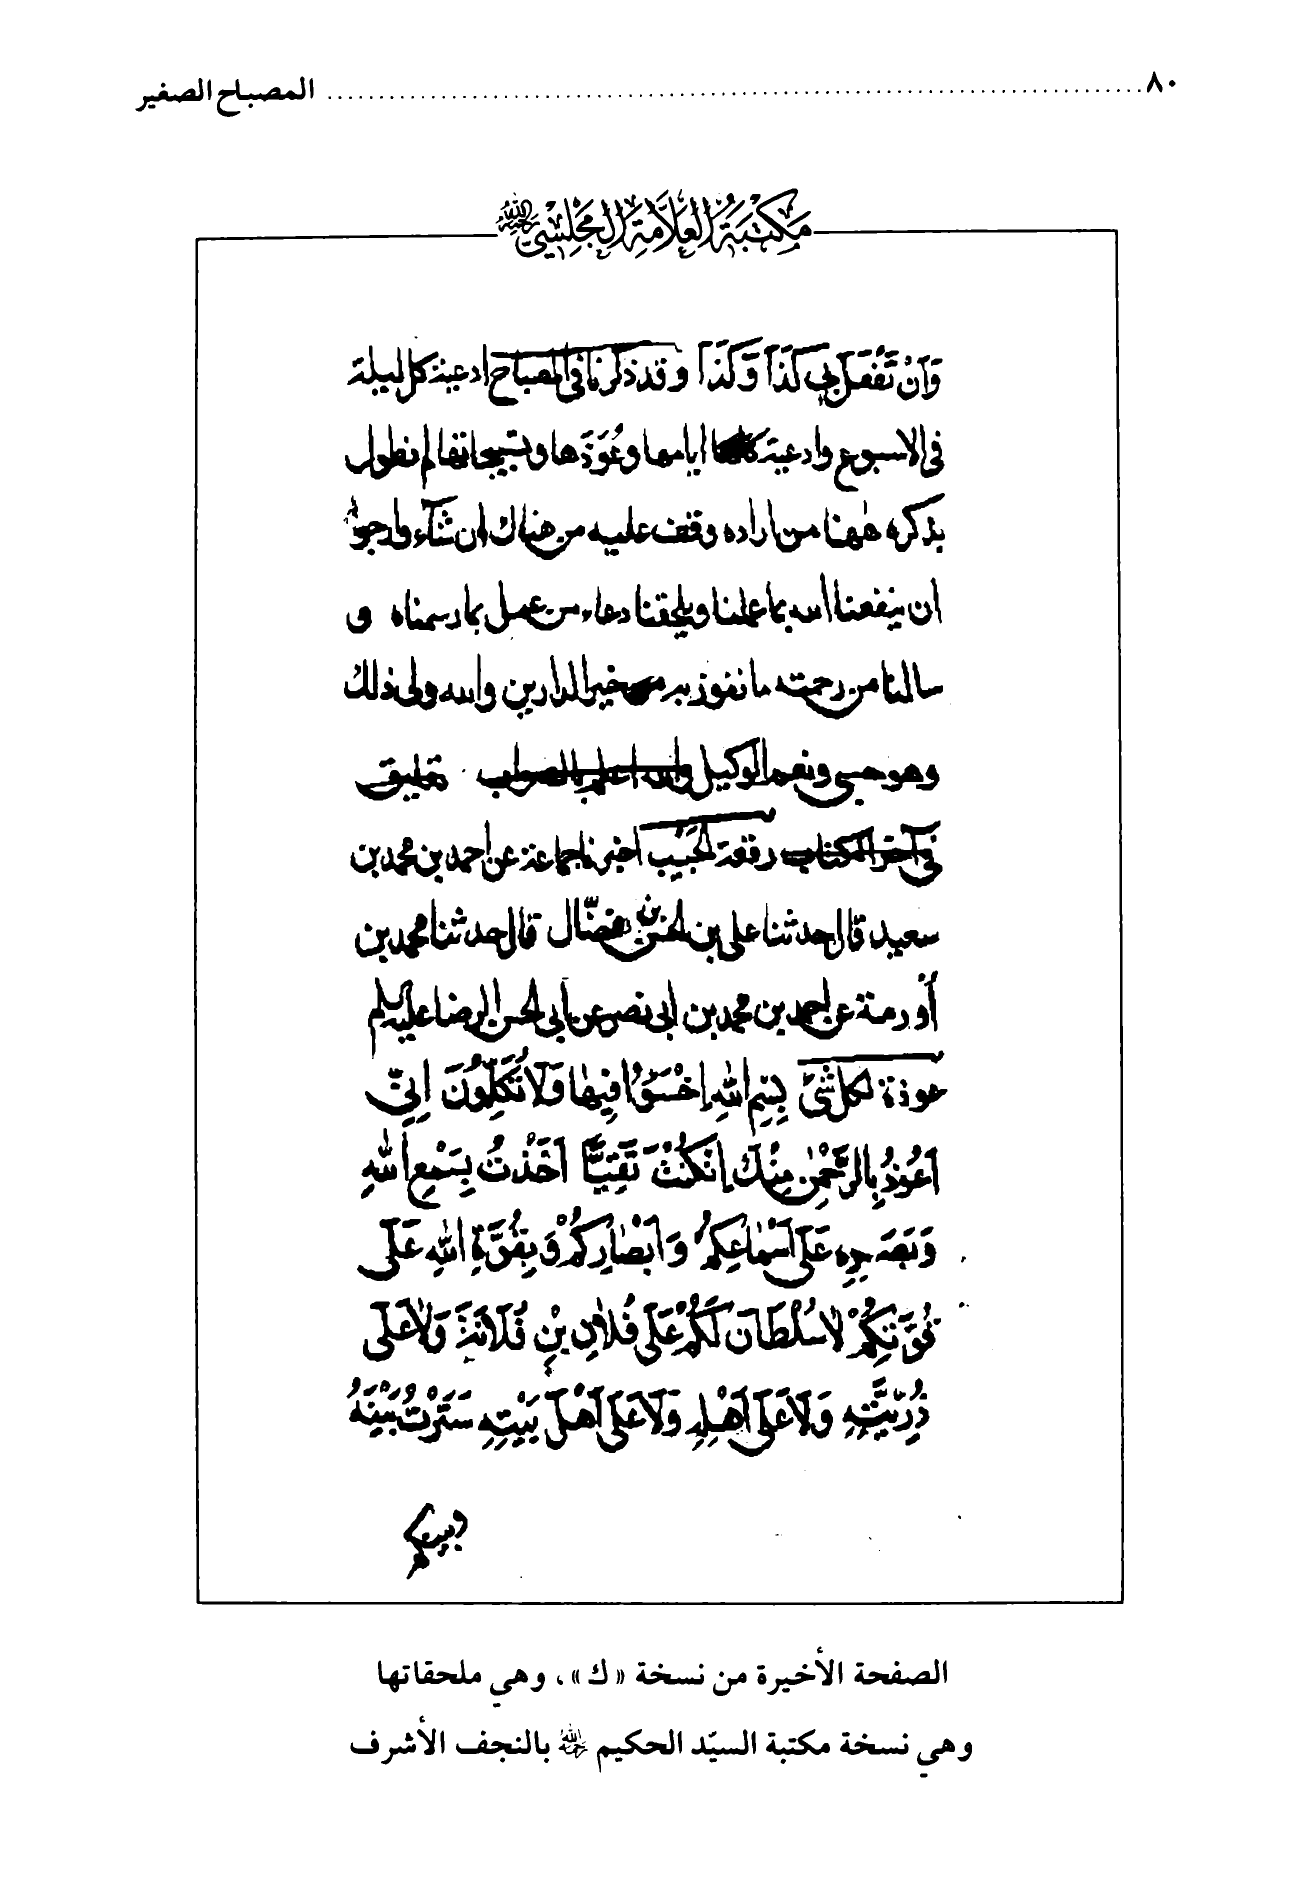 ٨٠ ........ المصباح الصغير
مكتبة العلامة المجلسي رحمه الله
وَاَنْ تَفْعَلَ بِي كَذَا وَكَذَا وقد ذكرنا في المصباح ادعية كل ليلة
في الاسبوع وادعية ايامها وعُوَذَها وتسبيحاتها لم نطول
بذكره ههنا من اراده وقف عليه من هناك ان شآء وارجو
ان ينفعنا الله بما عملنا ويلحقنا دعاء من عمل بما رسمناه و
سالنا من رحمته ما نفوز به من خير الدارين والله ولى ذلك
وهو حسبى ونعم الوكيل والله اعلم بالصواب تعليق
في آخر الكتاب رقعة الجَيْب اخبرنا جماعة عن احمد بن محمد بن
سعيد قال حدثنا على بن الحسن بن فضّال قال حدثنا محمد بن
أُورمة عن احمد بن محمد بن ابى نصر عن ابى الحسن الرضا عليه السلم
عوذة لكل شئ بِسْمِ اللهِ اِخْسَؤُا فِيهَا وَلَا تُكَلِّمُونَ اِنِّى
اَعُوذُ بِالرَّحْمٰنِ مِنْكَ اِنْ كُنْتَ تَقِيًّا اَخَذْتُ بِسَمْعِ اللهِ
وَبَصَرِهِ عَلَى اَسْمَاعِكُمْ وَاَبْصَارِكُمْ وَبِقُوَّةِ اللهِ عَلَى
قُوَّتِكُمْ لَا سُلْطَانَ لَكُمْ عَلَى فُلَانِ بْنِ فُلَانَةَ وَلَا عَلَى
ذُرِّيَّتِهِ وَلَا عَلَى اَهْلِهِ وَلَا عَلَى اَهْلِ بَيْتِهِ سَتَرْتُ بَيْنَهُ
وبينكم
الصفحة الأخيرة من نسخة «ك»، وهي ملحقاتها
وهي نسخة مكتبة السيّد الحكيم رحمه الله بالنجف الأشرف